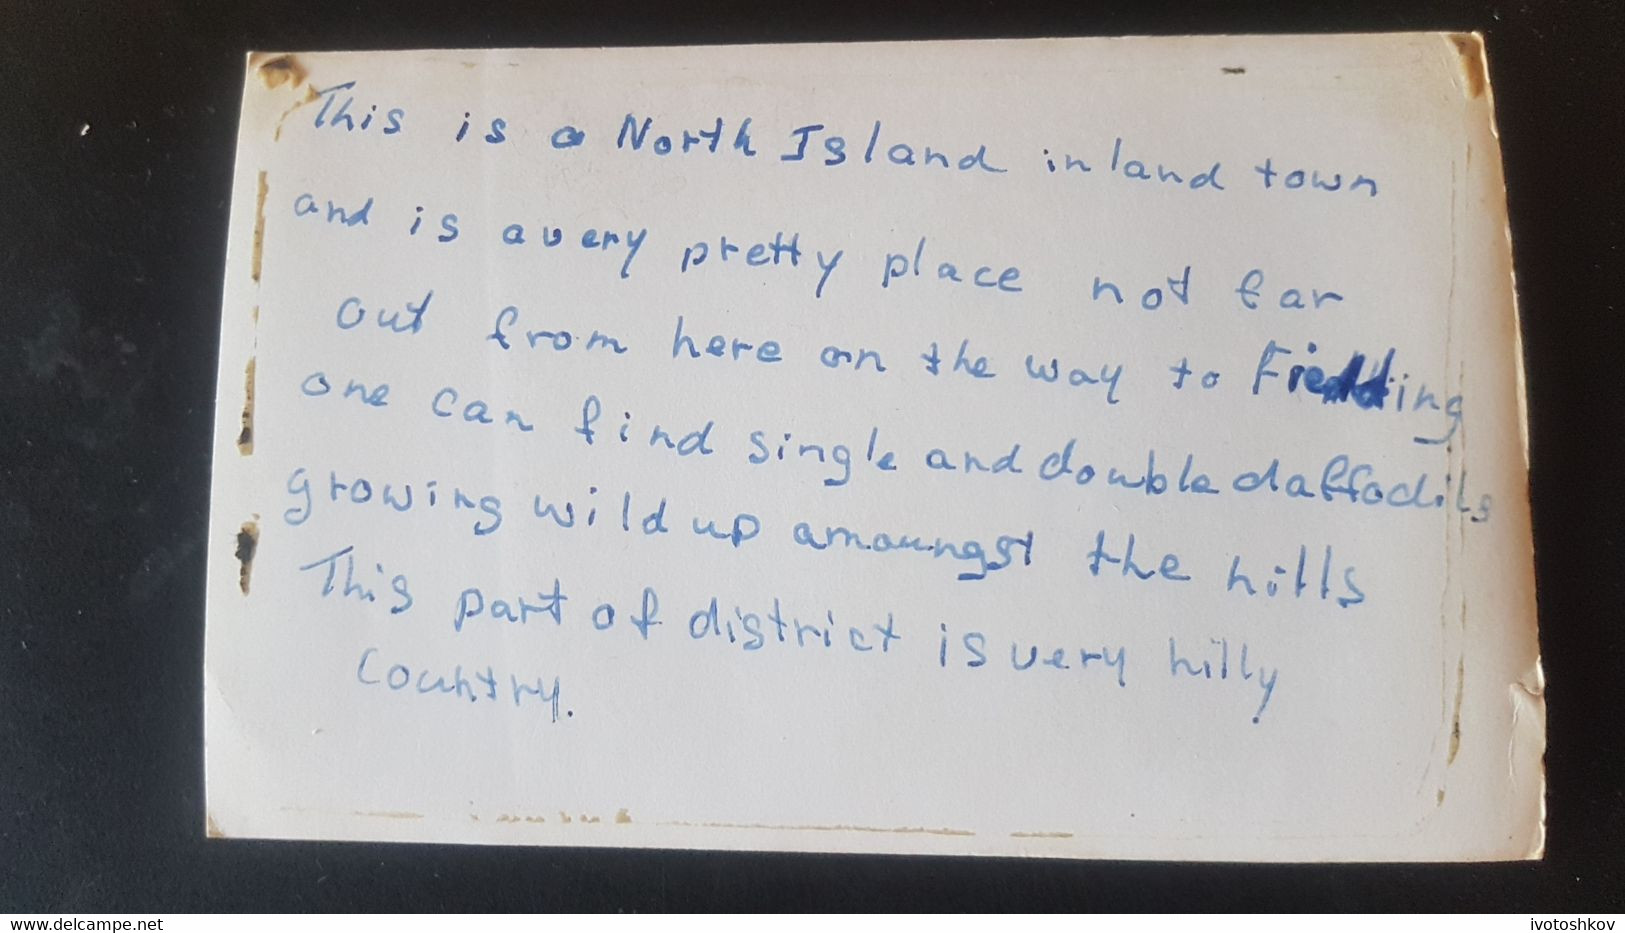 This is a North Island inland town
and is a very pretty place not far
out from here on the way to Fieldding
one can find single and double daffodils
growing wild up amoungst the hills
This part of district is very hilly
Country.
www.delcampe.net
ivotoshkov